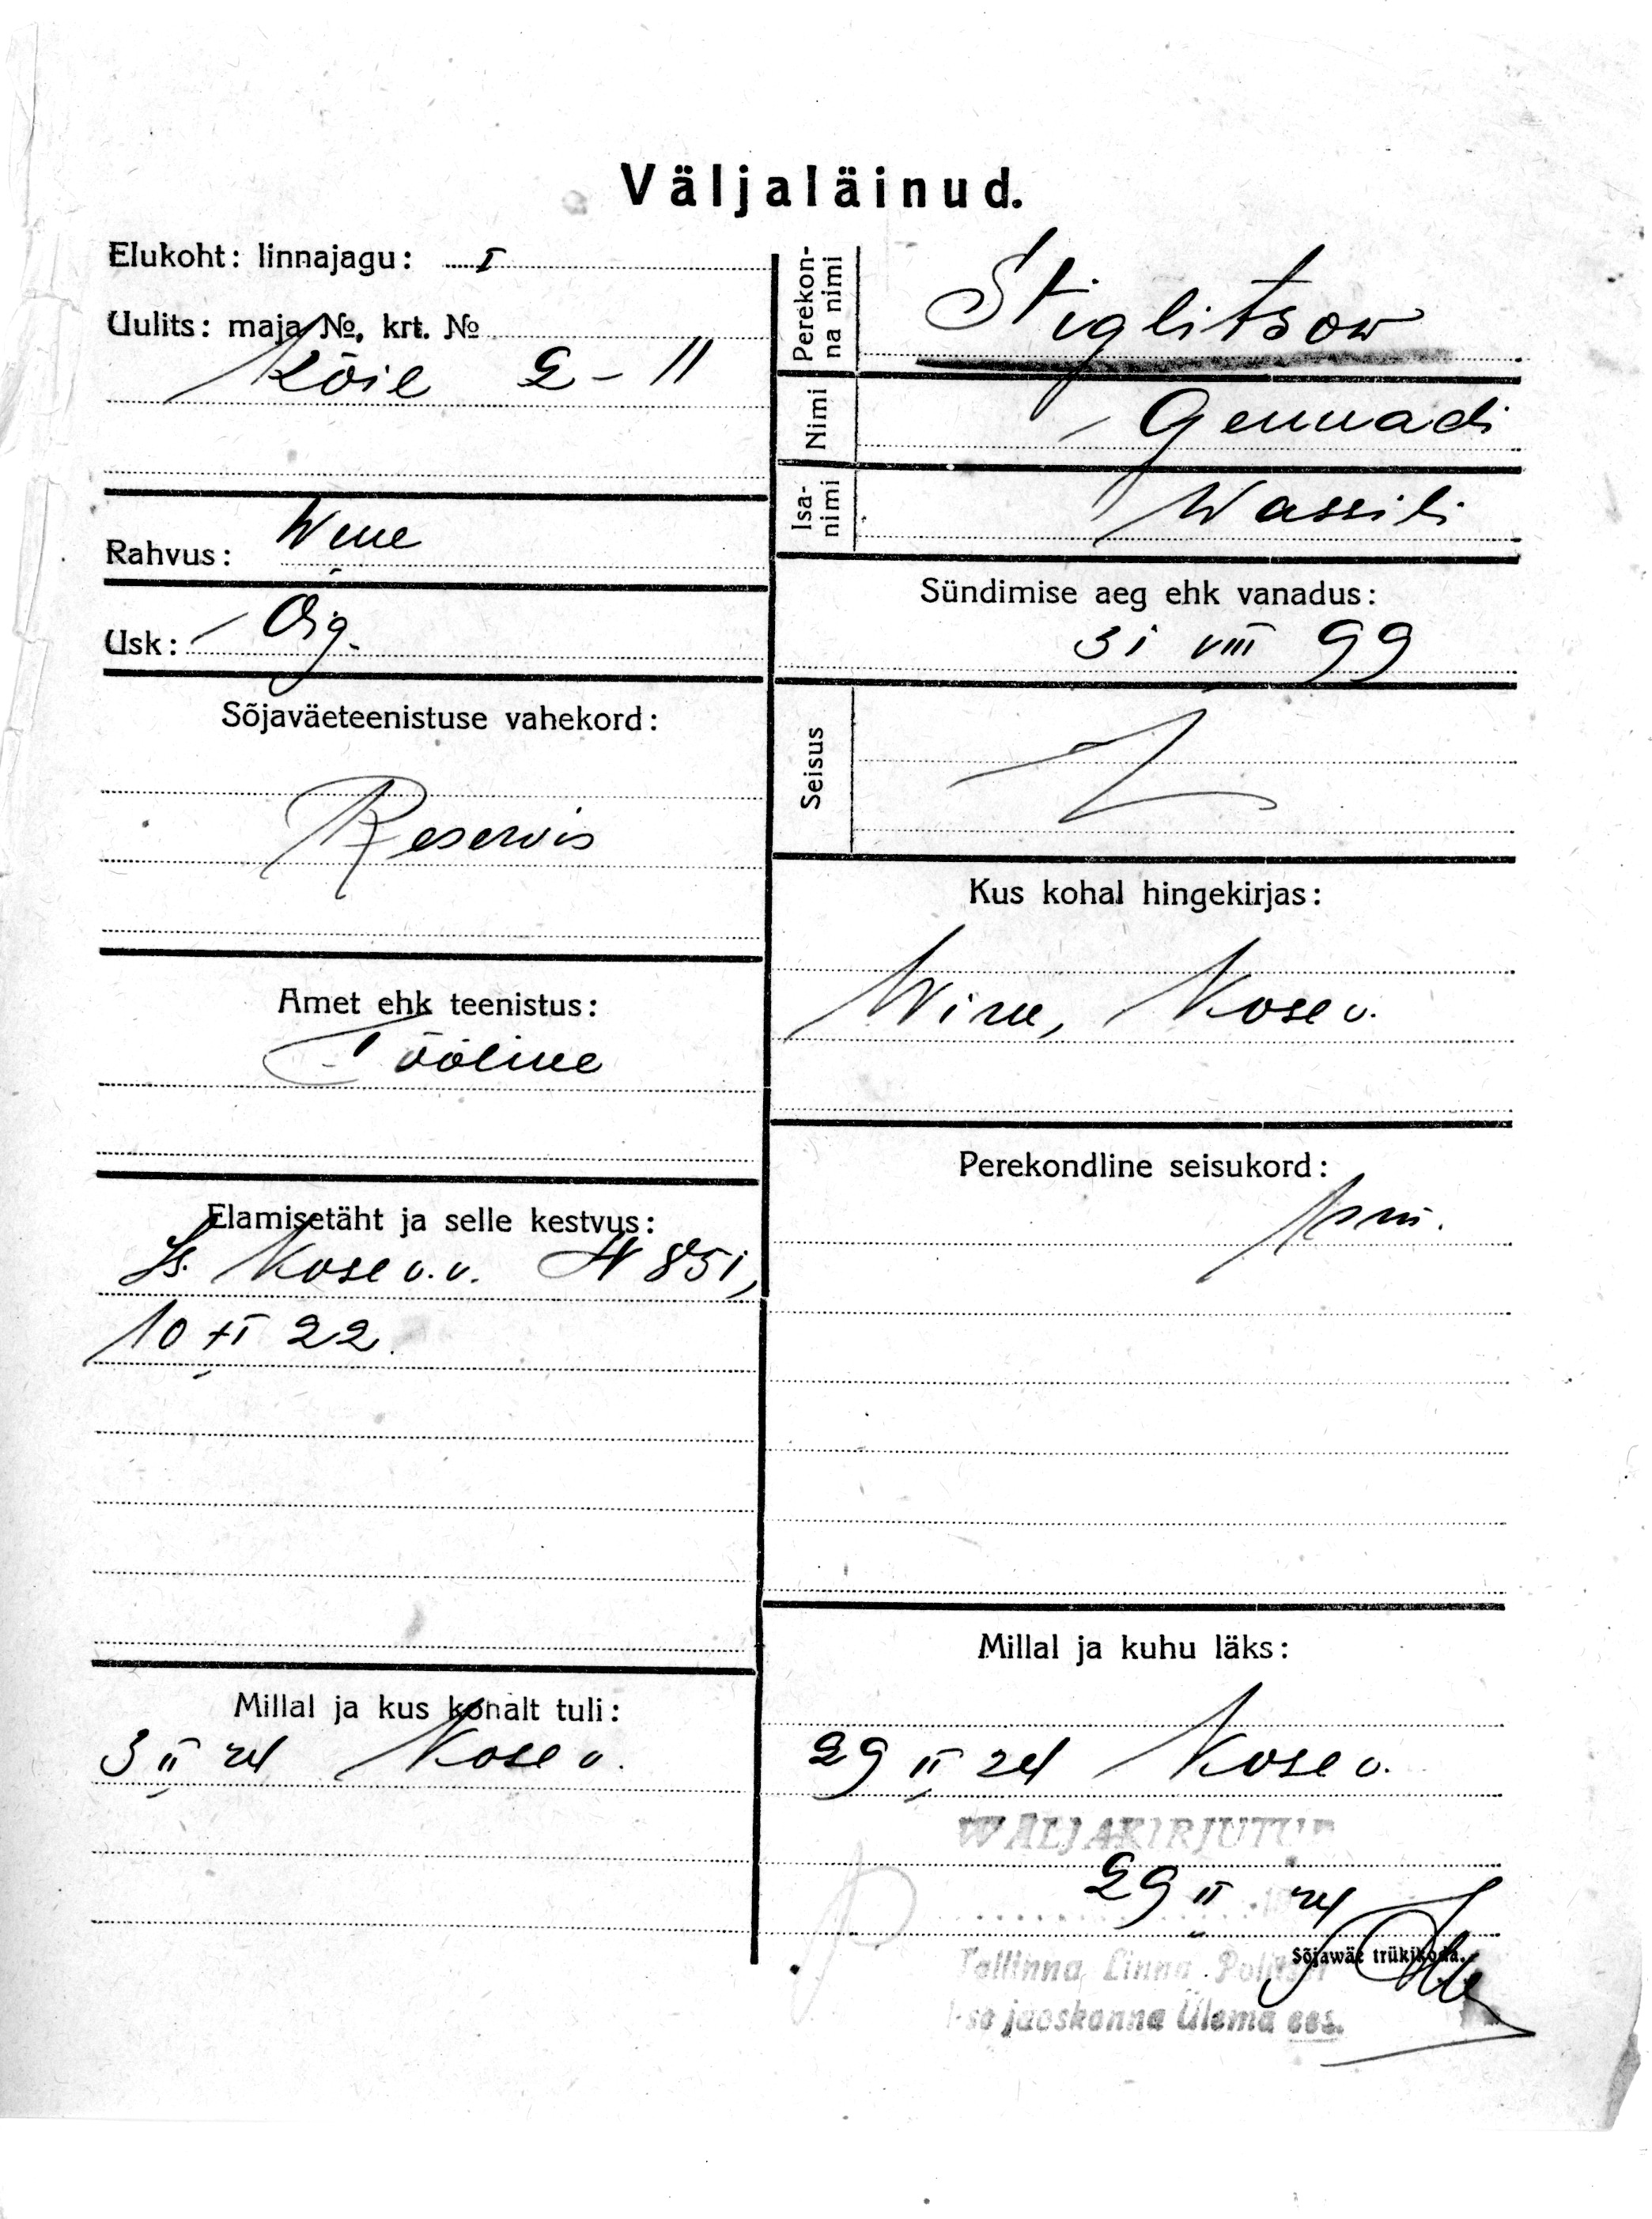 Väljaläinud.
Elukoht: linnajagu: I
Uulits: maja №, krt. №
Köie 2 – 11
Rahvus: Wene
Usk: Õig.
Sõjaväeteenistuse vahekord:
Reservis
Amet ehk teenistus:
Tööline
Elamisetäht ja selle kestvus:
Is. Kose v. v. N 851,
10 XI 22.
Millal ja kus kohalt tuli:
3 II 24 Kose v.
Perekonna nimi
Stiglitsow
Nimi
Gennadi
Isanimi
Wassili
Sündimise aeg ehk vanadus:
31 VIII 99
Seisus
Kus kohal hingekirjas:
Wiru, Kose v.
Perekondline seisukord:
Millal ja kuhu läks:
29 II 24 Kose v.
WÄLJAKIRJUTUD
29 II 24
Sõjawäe trükikoda.
Tallinna Linna Politsei
I-se jaoskonna Ülema ees.